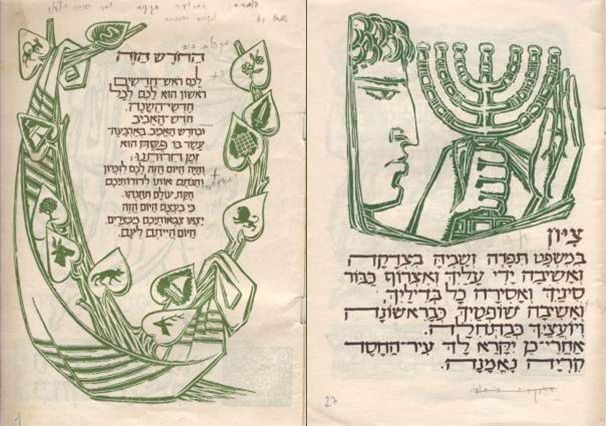 החדש הזה
לכם ראש־חדשים
ראשון הוא לכם לכל
חדשי־השנה.
חדש־האביב
ובחדש האביב, בארבעה־
עשר בו פסח הוא
זמן־חרותנו.
והיה היום הזה לכם לזכרון
וחגותם אותו לדורותיכם
חקת־עולם תחגהו.
כי בעצם היום הזה
יצאו צבאותיכם ממצרים,
היום הייתם לעם.
1
ציון
במשפט תפדה ושביה בצדקה
ואשיבה ידי עליך ואצרוף כבור
סיגיך ואסירה כל בדיליך.
ואשיבה שופטיך כבראשונה
ויועציך כבתחלה.
אחרי־כן יקרא לך עיר־
קריה נאמנה.
27